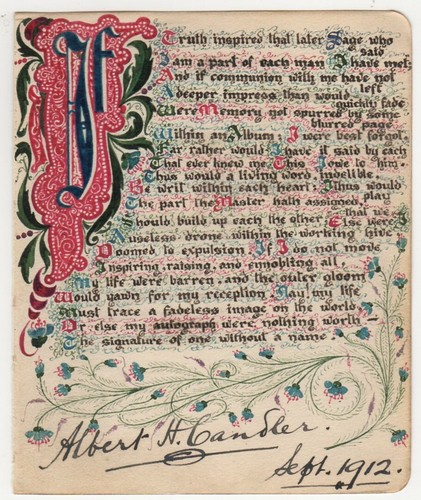 If
Truth inspired that later Sage who
said
I am a part of each man I have met;
And if communion with me have not
left
A deeper impress than would
quickly fade
Were Memory not spurred by some
blurred page
Within an Album I were best forgot.
Far rather would I have it said by each
That ever knew me This I owe to him.
Thus would a living word, indelible,
Be writ within each heart: Thus would
play
The part the Master hath assigned,
that we
Should build up each the other Else were I
A useless drone within the working hive
Doomed to expulsion If I do not move
Inspiring, raising, and ennobling all,
My life were barren, and the outer gloom
Would yawn for my reception Nay, my life
Must trace a fadeless image on the world,
Or else my autograph were nothing worth —
The signature of one without a name
Albert H. Candler.
Sept. 1912.